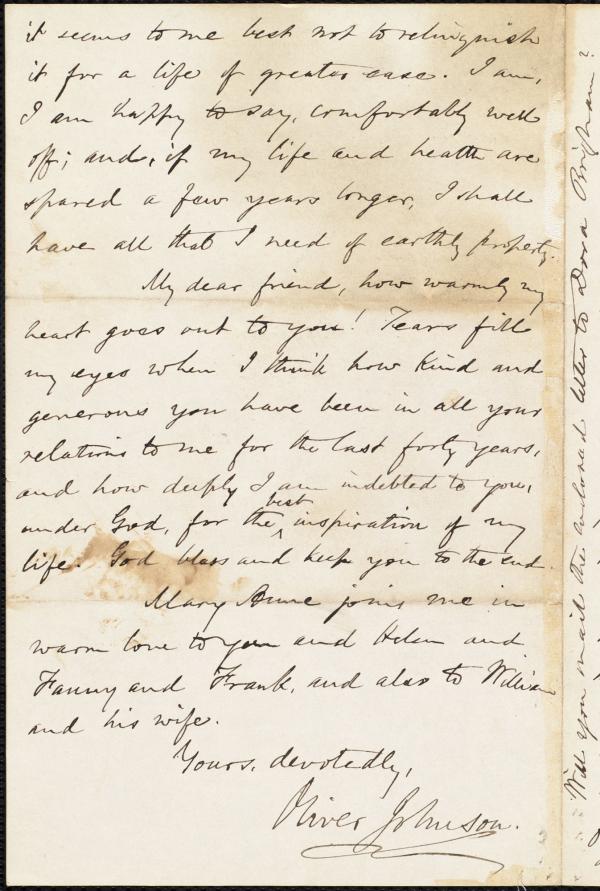 it seems to me best not to relinquish
it for a life of greater ease. I am,
I am happy to say, comfortably well
off; and, if my life and health are
spared a few years longer, I shall
have all that I need of earthly property.
My dear friend, how warmly my
heart goes out to you! Tears fill
my eyes when I think how kind and
generous you have been in all your
relations to me for the last forty years,
and how deeply I am indebted to you,
under God, for the best inspiration of my
life. God bless and keep you to the end.
Mary Anne joins me in
warm love to you and Helen and
Fanny and Frank, and also to William
and his wife.
Yours, devotedly,
Oliver Johnson.
Will you mail the enclosed letter to Dora Brigham?